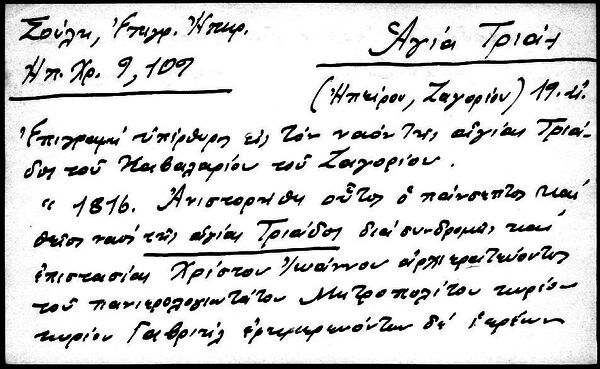 Σούλη, Ἐπιγρ. Ἠπειρ.
Ἠπ. Χρ. 9, 109
Ἁγία Τριάς
(Ἠπείρου, Ζαγορίου) 19. αἰ.
Ἐπιγραφὴ ὑπέρθυρος εἰς τὸν ναὸν τῆς ἁγίας Τριά-
δος τοῦ Καβαλαρίου τοῦ Ζαγορίου.
" 1816. Ἀνιστορήθη οὗτος ὁ πάνσεπτος καὶ
θεῖος ναὸς τῆς ἁγίας Τριάδος διὰ συνδρομῆς καὶ
ἐπιστασίας Χρίστου Ἰωάννου ἀρχιερατεύοντος
τοῦ πανιερολογιωτάτου Μητροπολίτου κυρίου
κυρίου Γαβριὴλ ἐφημερευόντων δὲ ἱερέων